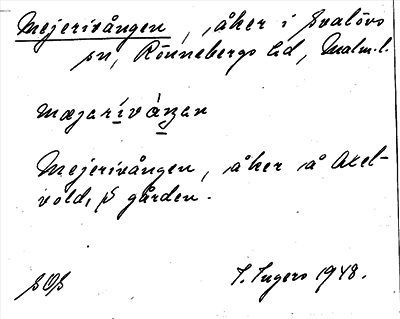 Mejerivången, åker i Svalövs
sn, Rönnebergs hd, Malm.l.
mæjarivàŋan
Mejerivången, åker å Axel-
vold, S gården.
SOS
I. Ingers 1948.